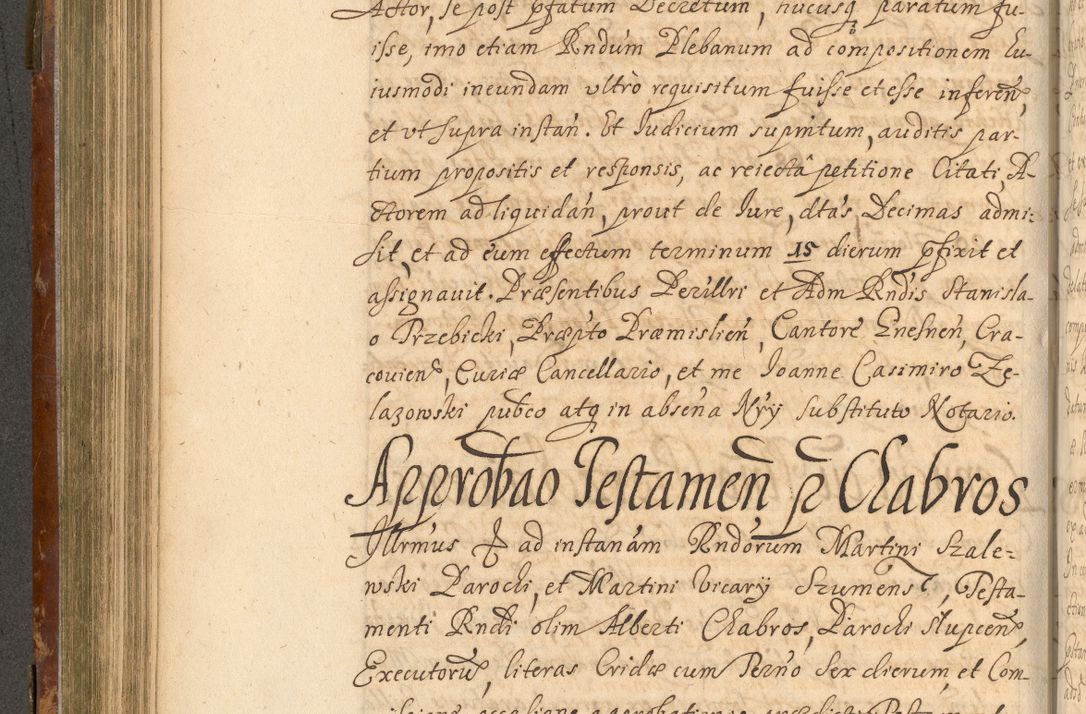 Actor, se post pfatum Decretum, hucusq paratum fu-
isse, imo etiam Rndum Plebanum ad compositionem hu-
iusmodi ineundam ultrò requisitum fuisse et esse inferen̄,
et vt supra instan̄. Et Iudicium suprıtum, auditis par-
tium propositis et responsis, ac reiectâ petitione Citati, A-
ctorem ad liquidan̄, prout de Iure, dtas Decimas admi:
sit, et ad eum effectum terminum 15 dierum pfixit et
assignauit. Præsentibus Perillri et Adm Rndis Stanisla-
o Przebicki, Præpto Præmislien̄, Cantore Gnesnen̄, Cra-
couien̄, Curiæ Cancellario, et me Ioanne Casimiro Ze-
lazowski pubco atq in absen̄a Nrij Substituto Notario.
Approbao Testamen̄ p Chabros
Illrmus ad instan̄am Rndorum Martini Szale-
wski Parochi, et Martini Vicarij Szumens, Testa-
menti Rndi olim Alberti Chabros, Parochi Slupcen̄,
Executorū, literas Cridæ cum Termo sex dierum, et Com-